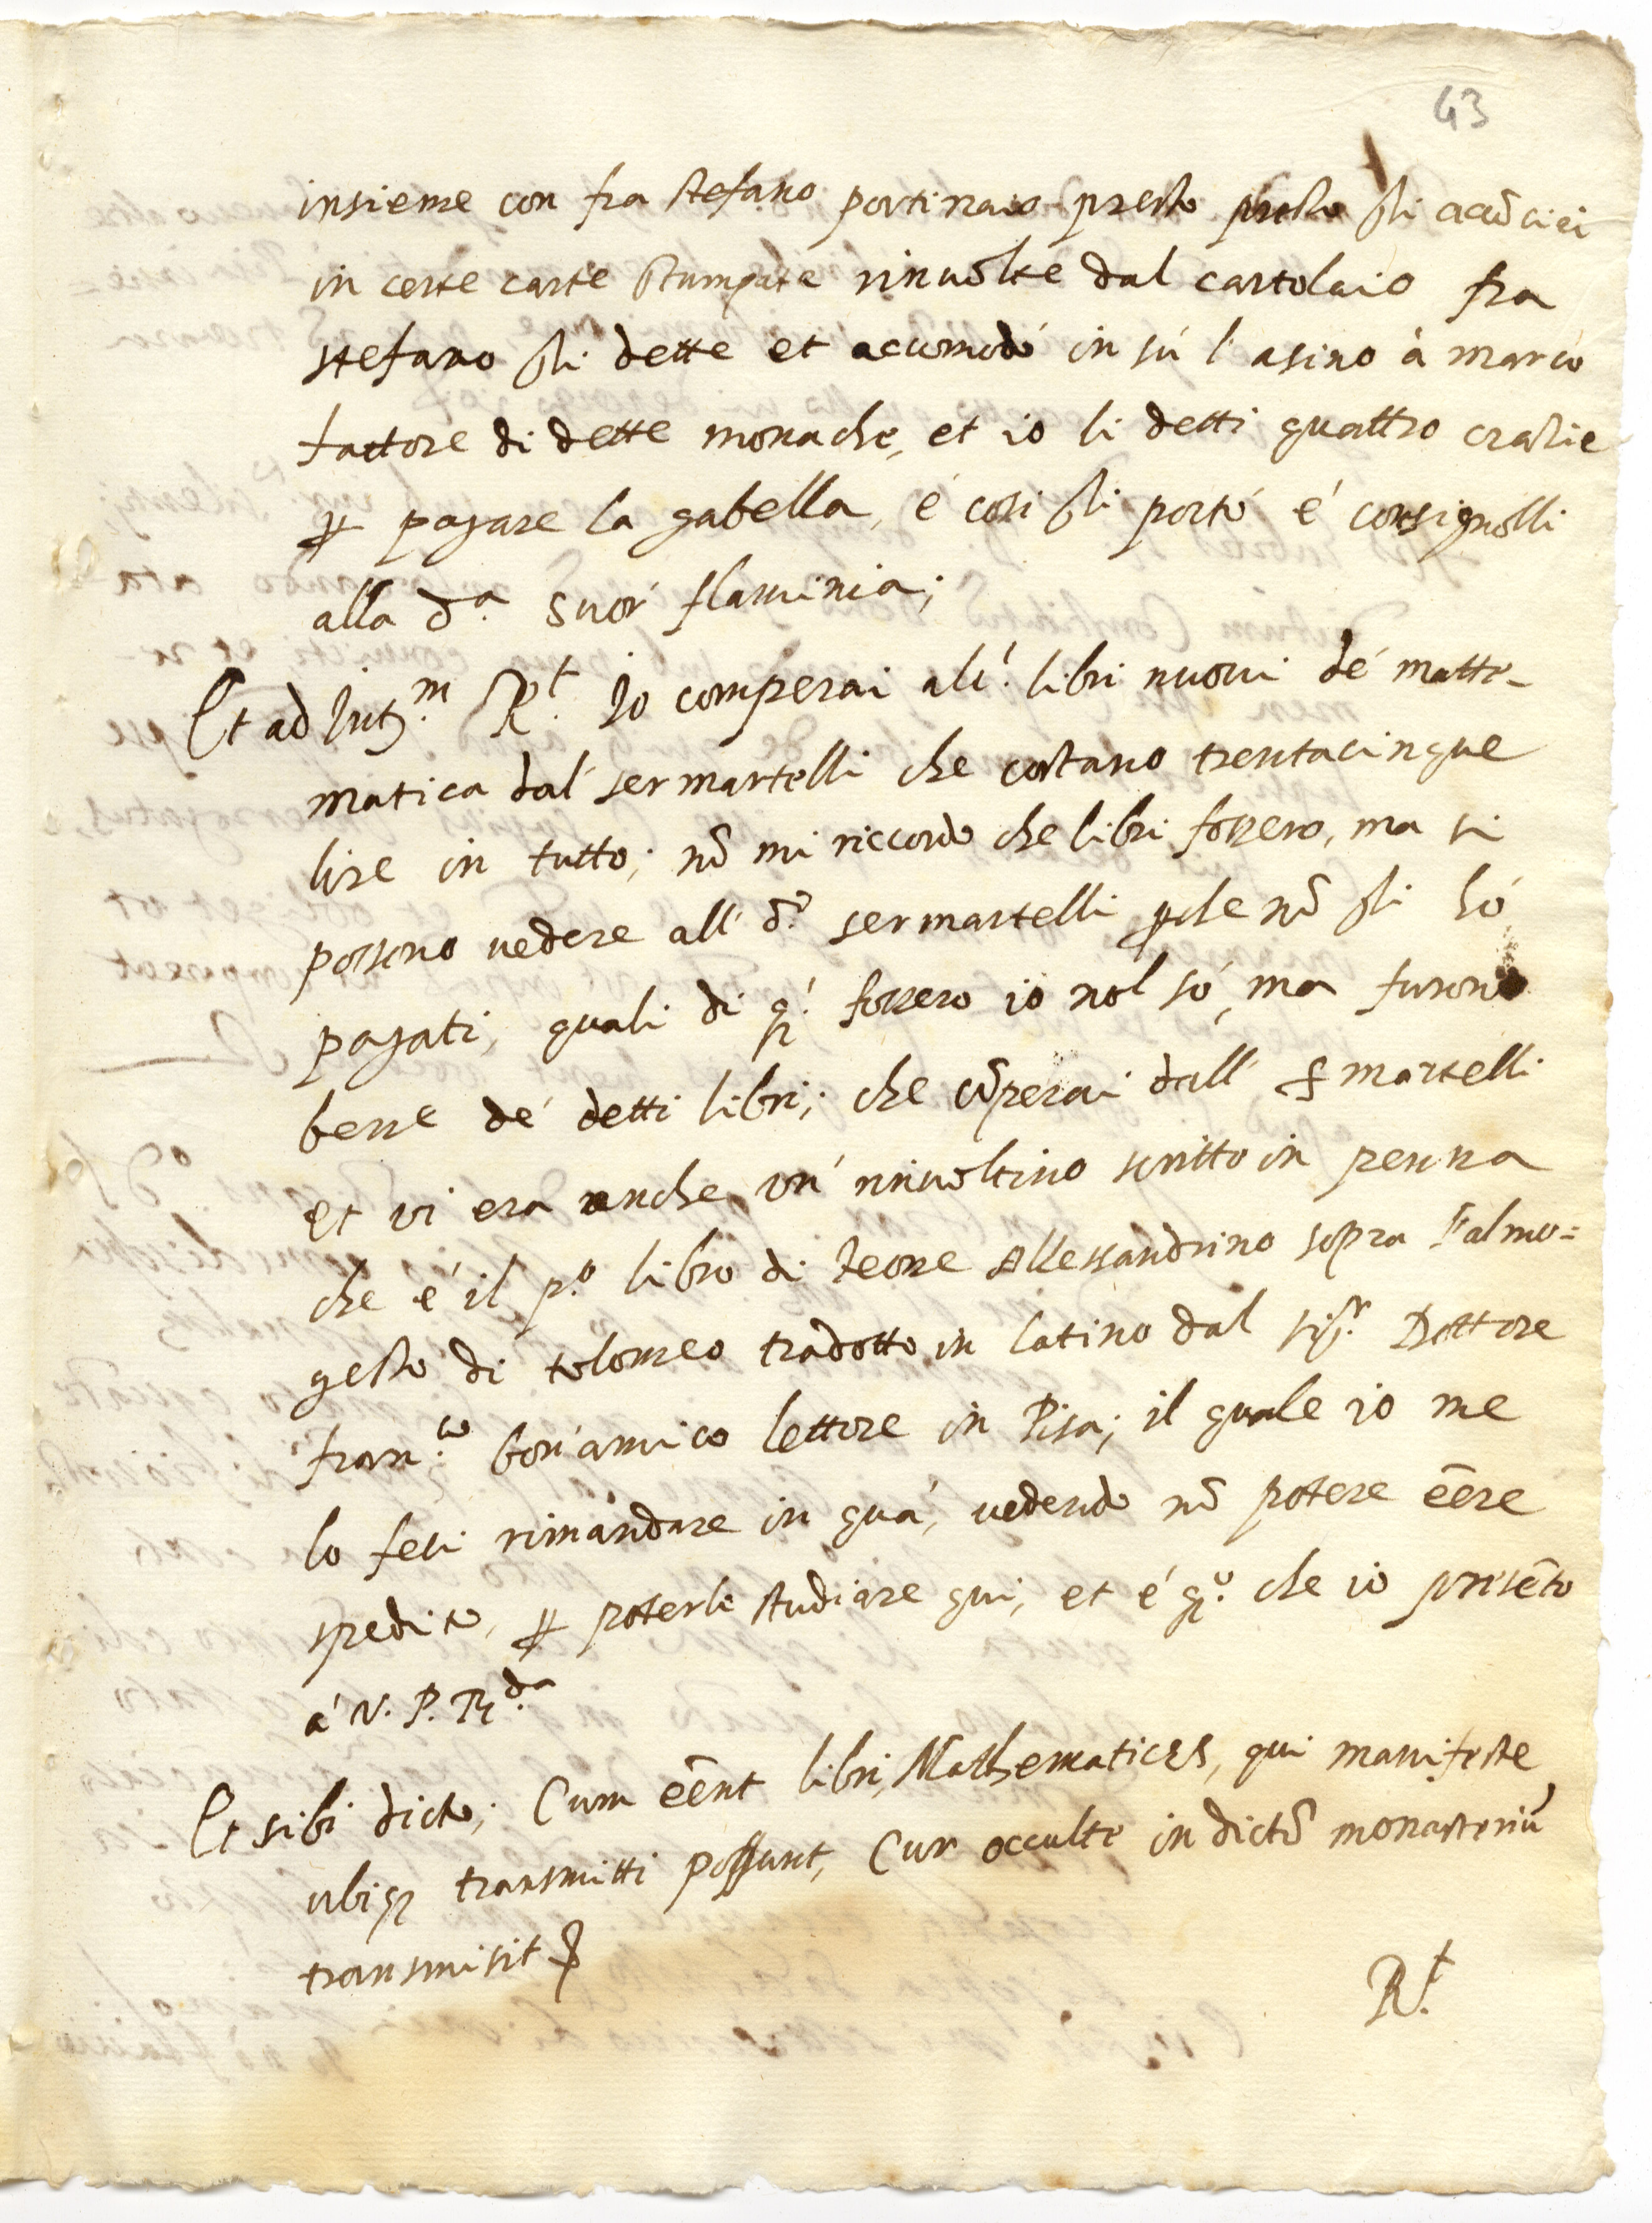 43
insieme con fra stefano portinaio presto presto gli acõciai
in certe carte stampate rinuolte dal cartolaio fra
stefano gli dette et accomodò in sù l'asino à marco
fattore di dette monache, et io li detti quattro crazie
p pagare la gabella, é cosi gli portó é consignolli
alla d.ª suor flaminia;
Et ad Int.m R.t Io comperai alc.i libri nuoui de matte-
matica dal sermartelli che costano trentacinque
lire in tutto; nõ mi riccordo che libri fossero, ma si
possono uedere all' d.º sermartelli pche nõ gli hó
pagati, quali di q.i fossero io nol só, ma furono
bene de' detti libri; che cõperai dall' sermartelli
et vi era anche un' rinuoltino scritto in penna
che é il p.º libro di teone Allessandrino sopra l'almo=
gesto di tolomeo tradotto in latino dal sig.r Dottore
fran.co bon'amico lettore in Pisa; il quale io me
lo feci rimandare in quá, uedendo nõ potere eẽre
spedito, p poterli studiare qui, et é q.º che io presẽto
a' V. P. R.da
Et sibi dicto; Cum eẽnt libri Mathematices, qui manifeste
ubiq; transmitti possunt, Cur occulte in dictũ monasteriũ
transmisit
R.t